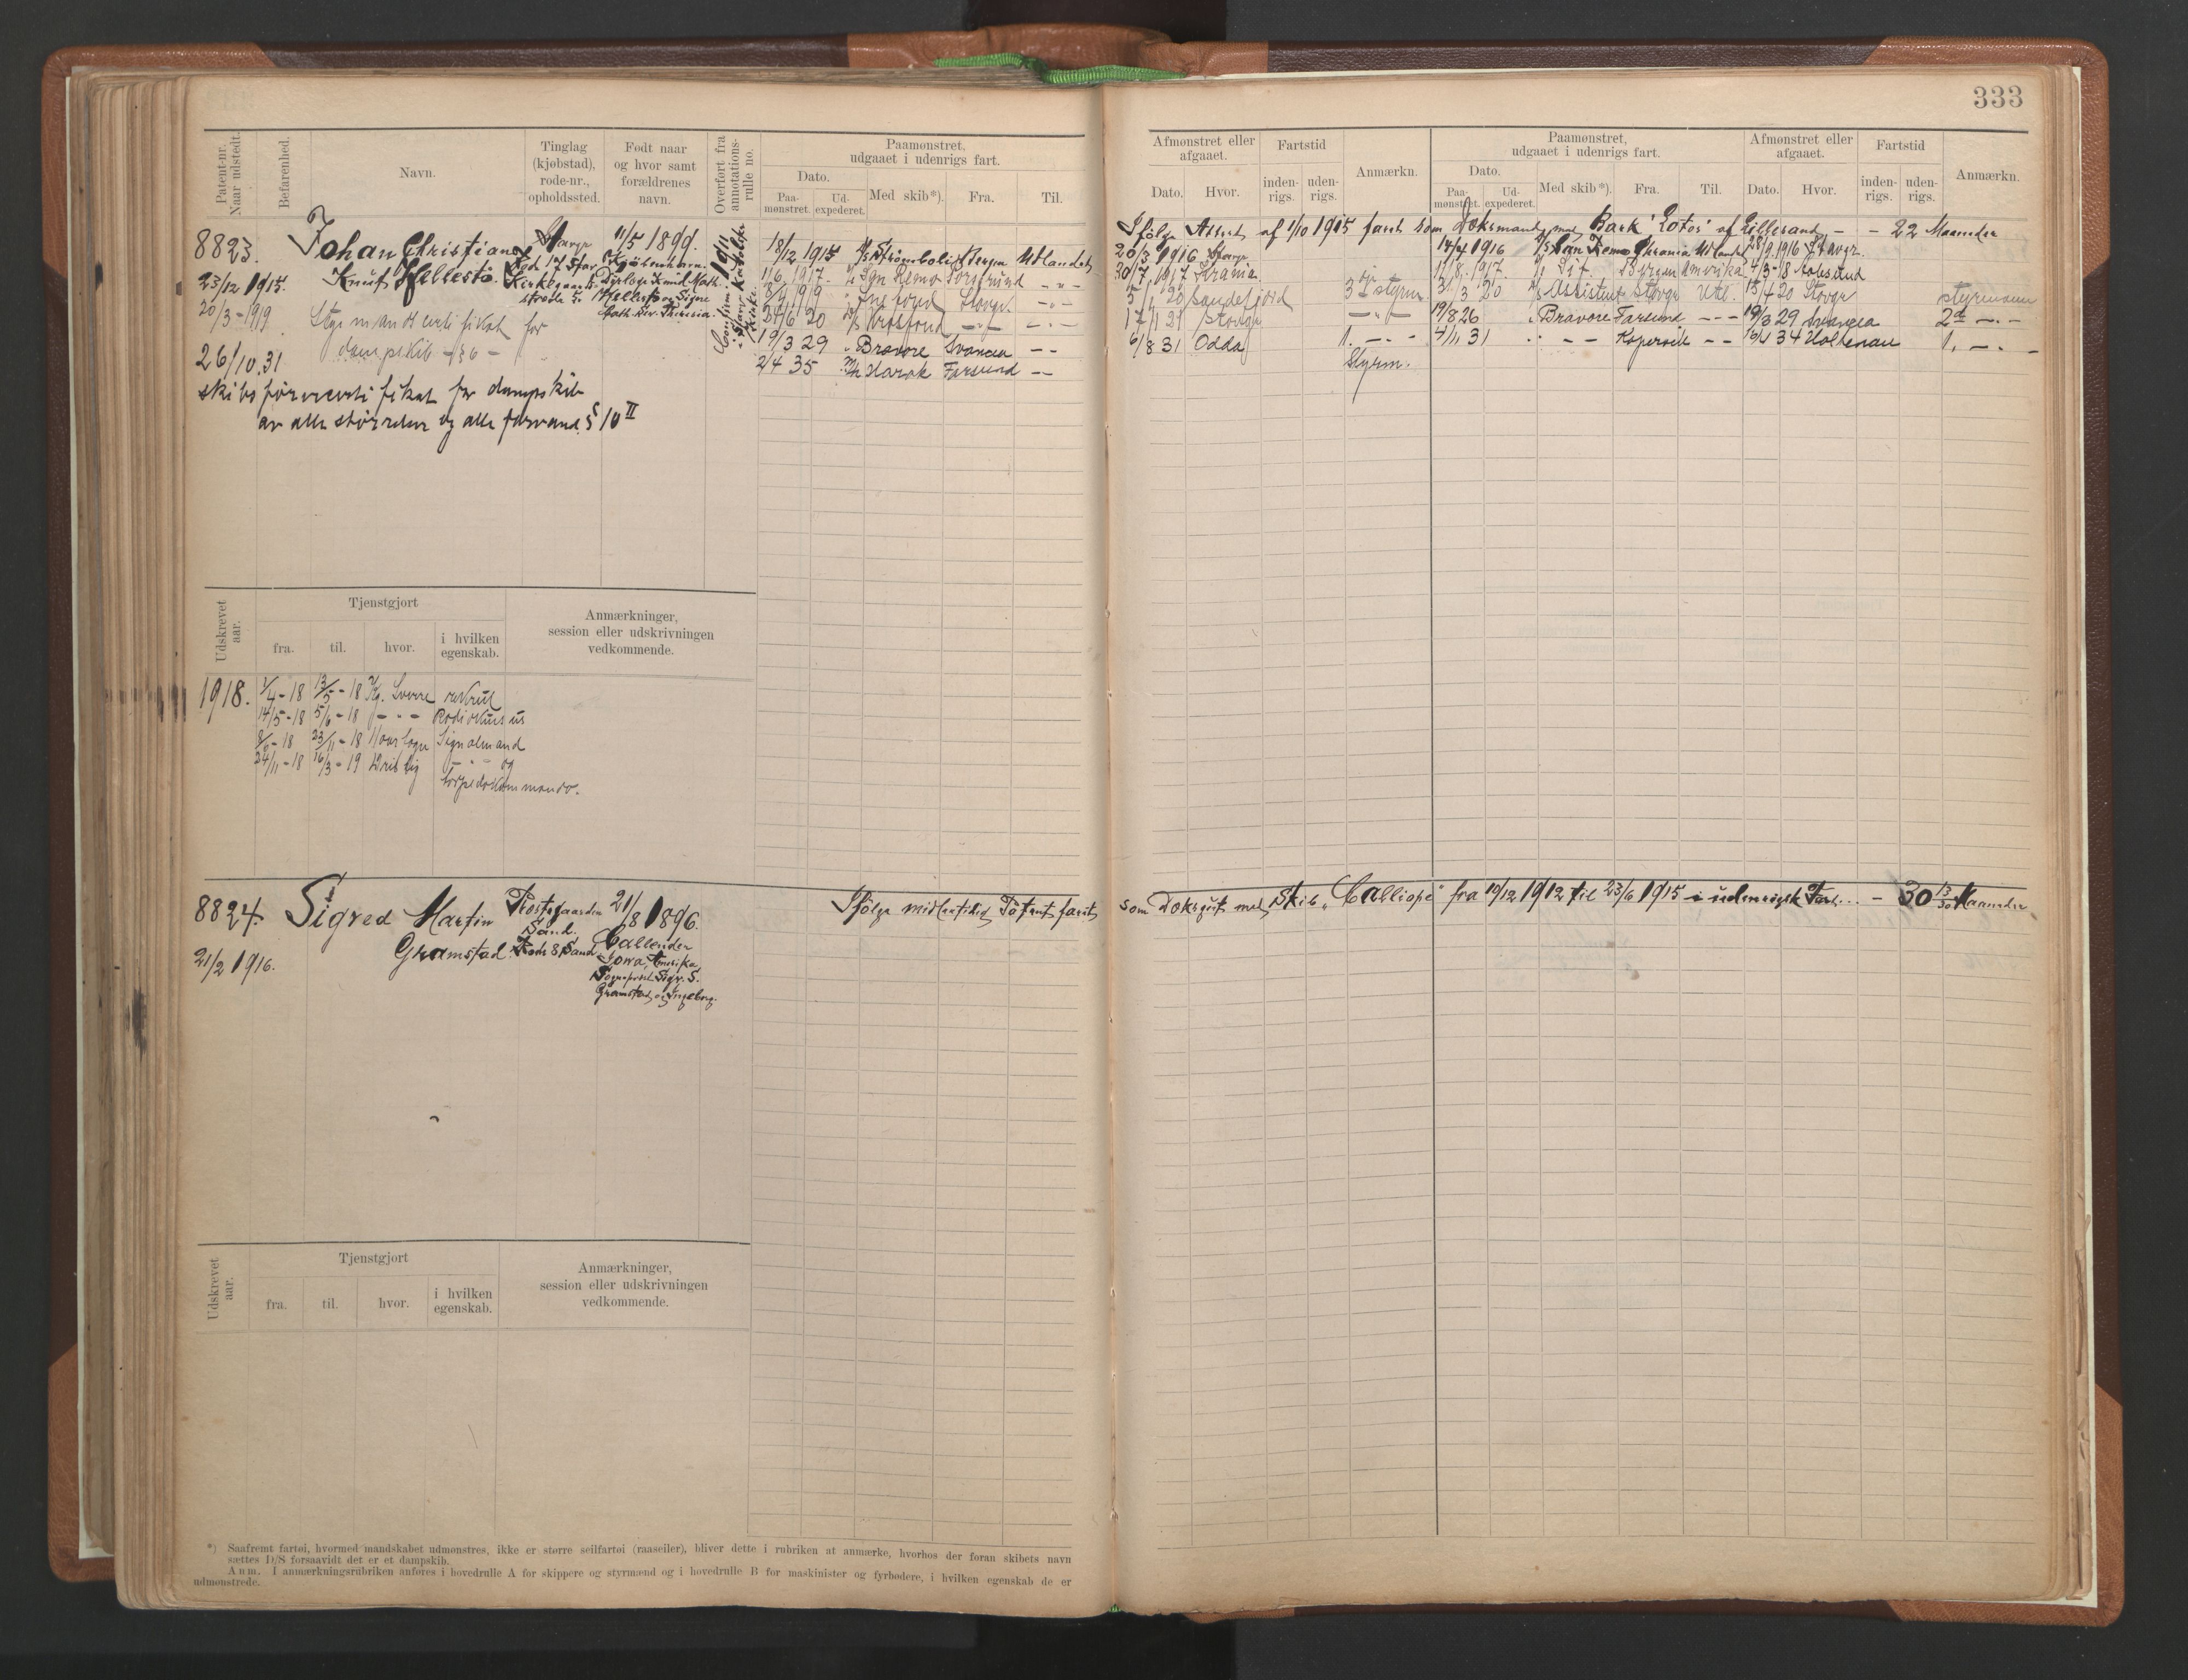 333
Patent-nr. Naar udstedt.
Befarenhed.
Navn.
Tinglag (kjøbstad), rode-nr., opholdssted.
Født naar og hvor samt forældrenes navn.
Overført fra annotationsrulle no.
Paamønstret, udgaaet i udenrigs fart.
Dato.
Paamønstret.
Udexpederet.
Med skib*).
Fra.
Til.
Afmønstret eller afgaaet.
Dato.
Hvor.
Fartstid
indenrigs.
udenrigs.
Anmærkn.
Paamønstret, udgaaet i udenrigs fart.
Dato.
Paamønstret.
Udexpederet.
Med skib*).
Fra.
Til.
Afmønstret eller afgaaet.
Dato.
Hvor.
Fartstid
indenrigs.
udenrigs.
Anmærkn.
8823.
23/12 1915.
20/3 - 1919
26/10.31
Johan Christian
Knut Hellestø.
Styrmandscertifikat for
dampskib - § 6 -
skibsførercertifikat for dampskib
av alle størrelser og alle farvand. § 10 II
Stavgr
Rod 17 Stav.
Kirkegaards-
11/5 1899.
Kjøbenhavn.
18/12 1915 D/S Strømboli Bergen Utlandet
11/6 1917. San Remo Porsgrund - " -
24/6 20 Krosfond
19/3 29 " Bravore Svansea - -
2/4 35 Farsund -
Ifølge Attest af 1/10 1915 faret som Dæksmand med Bark "Lotos" af Lillesand - - 22 Maaneder
20/3 1916 Stavgr.
14/4 1916 D/S San Remo Krania Utlandet 28/9 1916 Stavgr.
30/7 1917 Krania
11/8 1917. Sif. Bergen Amerika 4/3-18
5/1 20 Sandefjord 3die styrm
3/3 20 D/S Assistent Stavgr Utl. 15/4 20 Stavgr styrmann
17/1 21 Stavgr - " -
19/8 26 " Bravore Farsund - - 19/3 29 Svansea 2d - " -
6/8 31 Odda 1. - " -
Styrm.
4/11 31 " - - Kopervik - - 19/1 34 Holtenau 1. - " -
Udskrevet aar.
Tjenstgjort
fra.
til.
hvor.
i hvilken egenskab.
Anmærkninger, session eller udskrivningen vedkommende.
1918.
1/4 - 18 13/5 - 18 Kg. Sverre rekrut
14/5 - 18 5/6 - 18 - " - Radiokursus
8/6 - 18 23/11 - 18 Signalmand
24/11 - 18 16/3 - 19 - " - og
torpedokommando.
8824.
21/2 1916.
Sigved Martin
Gramstad.
Prestegaarden
Sand.
Rode 8 Sand
21/8 1896.
Callender
Iowa, Amerika
Sogneprest Sigv. S.
Gramstad og Ingeborg.
Ifølge midlertidig Patent faret som Dæksgut med Skib "Calliope" fra 19/12 1912 til 23/6 1915 i udenrigsk Fart... - 30 13/30 Maaneder
Udskrevet aar.
Tjenstgjort
fra.
til.
hvor.
i hvilken egenskab.
Anmærkninger, session eller udskrivningen vedkommende.
*) Saafremt fartøi, hvormed mandskabet udmønstres, ikke er større seilfartøi (raaseiler), bliver dette i rubriken at anmærke, hvorhos der foran skibets navn
sættes D/S forsaavidt det er et dampskib.
Anm. I anmærkningsrubriken anføres i hovedrulle A for skippere og styrmænd og i hovedrulle B for maskinister og fyrbødere, i hvilken egenskab de er
udmønstrede.